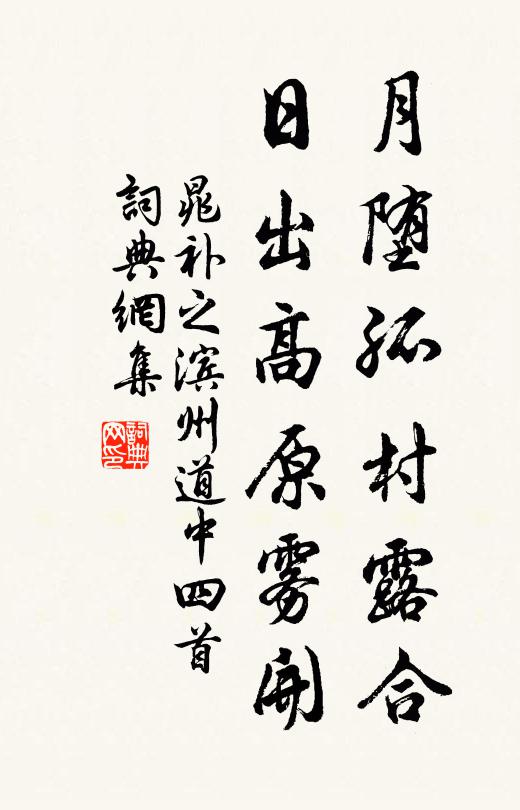 月堕孤村露合
日出高原雾開
晁补之滨州道中四首
詞典網集
詞典
网印